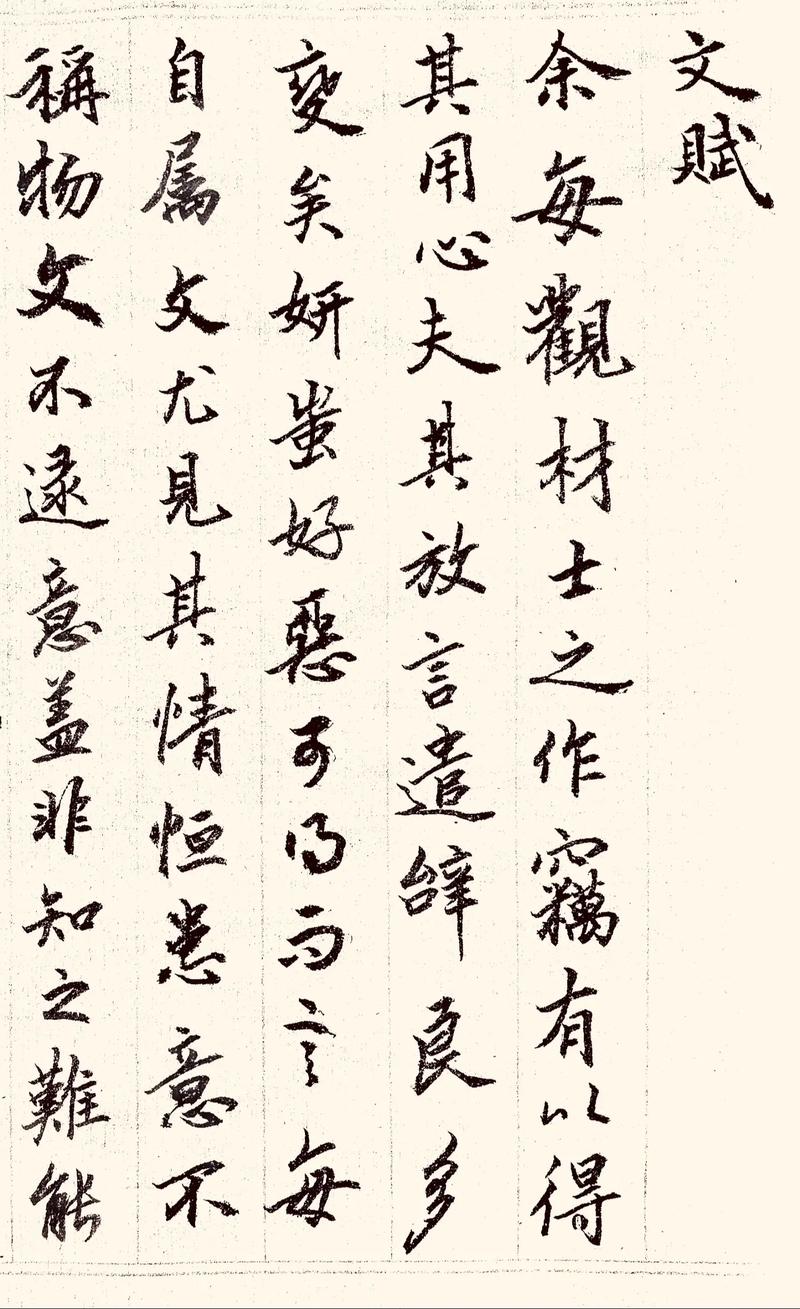 文賦
余每觀材士之作竊有以得
其用心夫其放言遣辭良多
變矣妍蚩好惡可得而言每
自属文尤見其情恒患意不
稱物文不逮意盖非知之難能